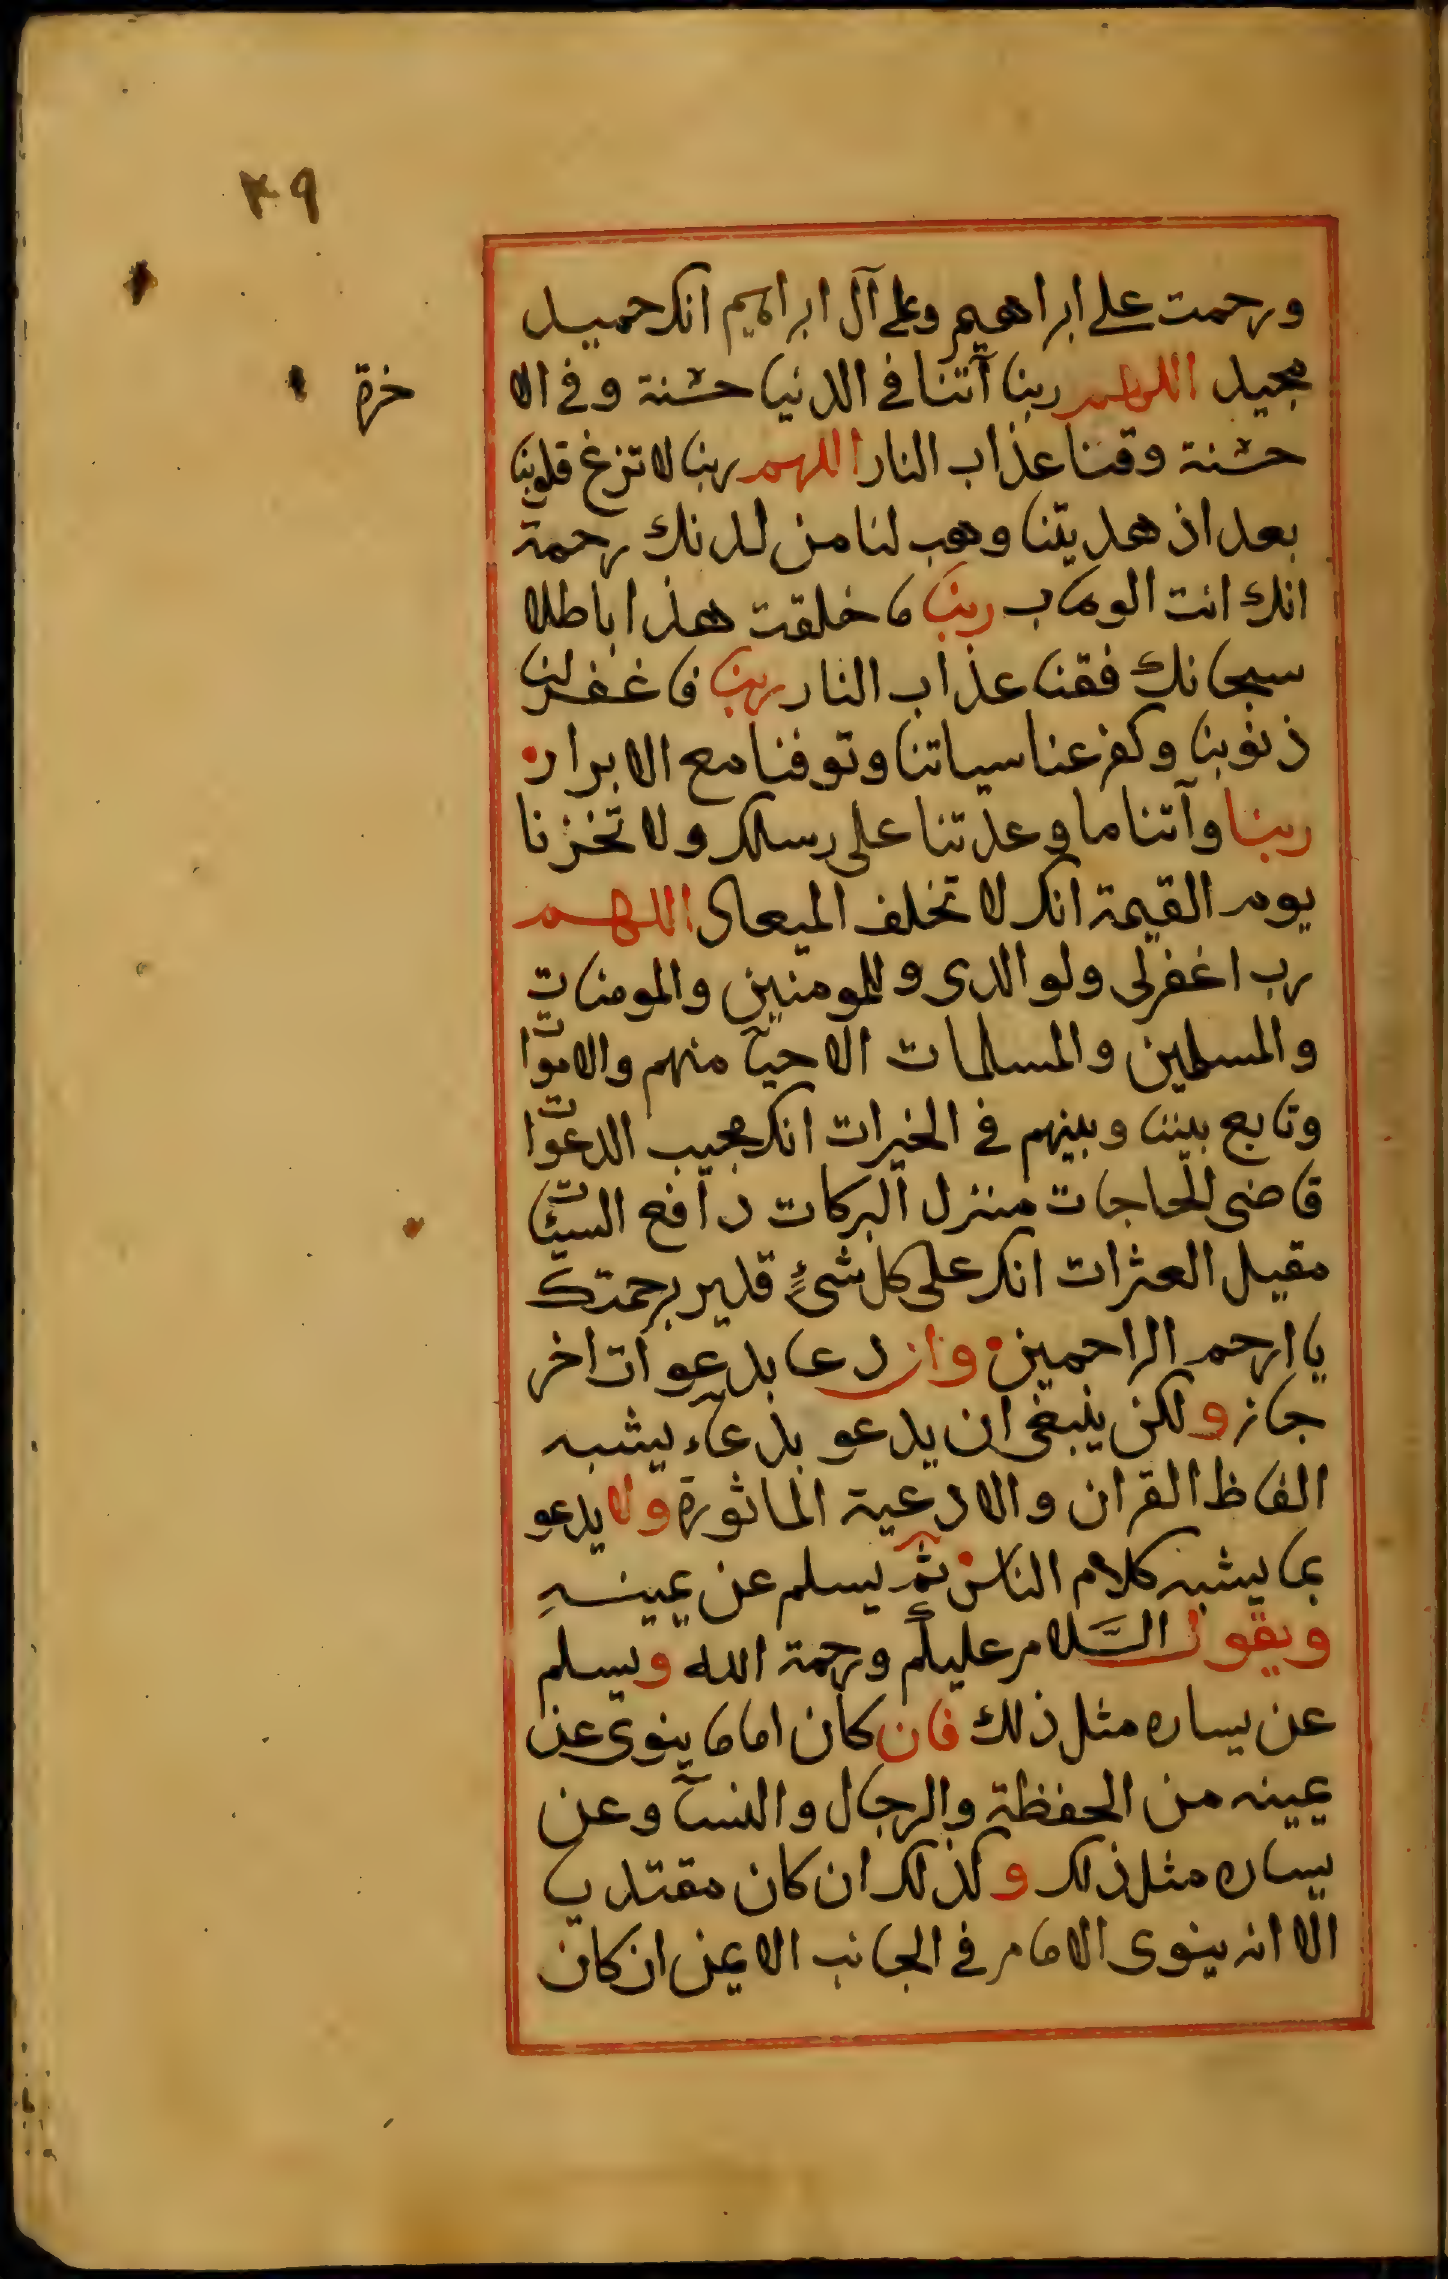 ٣٩
ورحمت على ابراهيم وعلى آل ابراهيم انك حميد
مجيد اللهم ربنا آتنا في الدنيا حسنة وفي الا
خرة
حسنة وقنا عذاب النار اللهم ربنا لا تزغ قلوبنا
بعد اذ هديتنا وهب لنا من لدنك رحمة
انك انت الوهاب ربنا ما خلقت هذا باطلا
سبحانك فقنا عذاب النار ربنا فاغفر لنا
ذنوبنا وكفر عنا سياتنا وتوفنا مع الابرار
ربنا وآتنا ما وعدتنا على رسلك ولا تخزنا
يوم القيمة انك لا تخلف الميعاد اللهم
رب اغفر لى ولوالدى وللمومنين والمومنات
والمسلمين والمسلمات الاحيآ منهم والاموات
وتابع بيننا وبينهم في الخيرات انك مجيب الدعوات
قاضى الحاجات منزل البركات دافع السيئات
مقيل العثرات انك على كل شئ قدير برحمتك
يا ارحم الراحمين وان دعا بدعوات اخر
جاز ولكن ينبغى ان يدعو بدعآء يشبه
الفاظ القران والادعية الماثورة ولا يدعو
بما يشبه كلام الناس ثم يسلم عن يمينه
ويقول السلام عليكم ورحمة الله ويسلم
عن يساره مثل ذلك فان كان اماما ينوى عن
يمينه من الحفظة والرجال والنسآ وعن
يساره مثل ذلك وكذلك ان كان مقتديا
الا انه ينوى الامام في الجانب الايمن ان كان